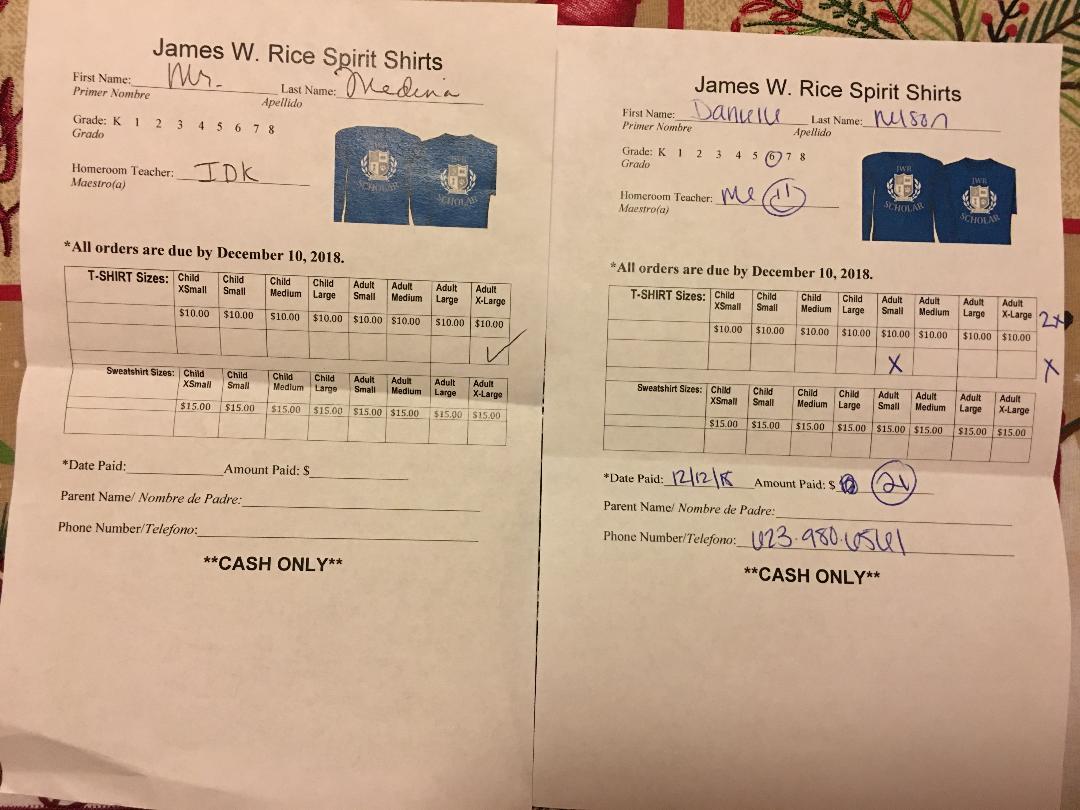 James W. Rice Spirit Shirts
First Name: Mr. Last Name: Medina
Primer Nombre Apellido
Grade: K 1 2 3 4 5 6 7 8
Grado
Homeroom Teacher: IDK
Maestro(a)
SCHOLAR
SCHOLAR
*All orders are due by December 10, 2018.
T-SHIRT Sizes: Child XSmall Child Small Child Medium Child Large Adult Small Adult Medium Adult Large Adult X-Large
$10.00 $10.00 $10.00 $10.00 $10.00 $10.00 $10.00 $10.00
✓
Sweatshirt Sizes: Child XSmall Child Small Child Medium Child Large Adult Small Adult Medium Adult Large Adult X-Large
$15.00 $15.00 $15.00 $15.00 $15.00 $15.00 $15.00 $15.00
*Date Paid: Amount Paid: $
Parent Name/ Nombre de Padre:
Phone Number/Telefono:
**CASH ONLY**
James W. Rice Spirit Shirts
First Name: Danielle Last Name: Nelson
Primer Nombre Apellido
Grade: K 1 2 3 4 5 6 7 8
Grado
Homeroom Teacher: Me
Maestro(a)
JWR JWR
SCHOLAR SCHOLAR
*All orders are due by December 10, 2018.
T-SHIRT Sizes: Child XSmall Child Small Child Medium Child Large Adult Small Adult Medium Adult Large Adult X-Large 2x
$10.00 $10.00 $10.00 $10.00 $10.00 $10.00 $10.00 $10.00
X X
Sweatshirt Sizes: Child XSmall Child Small Child Medium Child Large Adult Small Adult Medium Adult Large Adult X-Large
$15.00 $15.00 $15.00 $15.00 $15.00 $15.00 $15.00 $15.00
*Date Paid: 12/12/18 Amount Paid: $
Parent Name/ Nombre de Padre:
Phone Number/Telefono: 623.980.6561
**CASH ONLY**